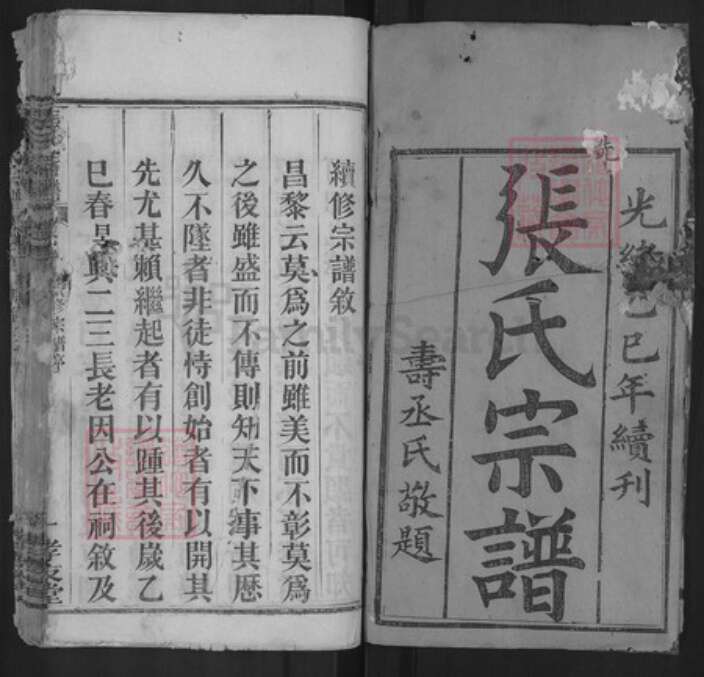 光緒乙巳年續刊
張氏宗譜
壽丞氏敬題
續修宗譜敘
昌黎云莫爲之前雖美而不彰莫爲
之後雖盛而不傳則知天下事其歷
久不墜者非徒恃創始者有以開其
先尤甚賴繼起者有以踵其後歲乙
巳春㒷與二三長老因公在祠敘及
FamilySearch